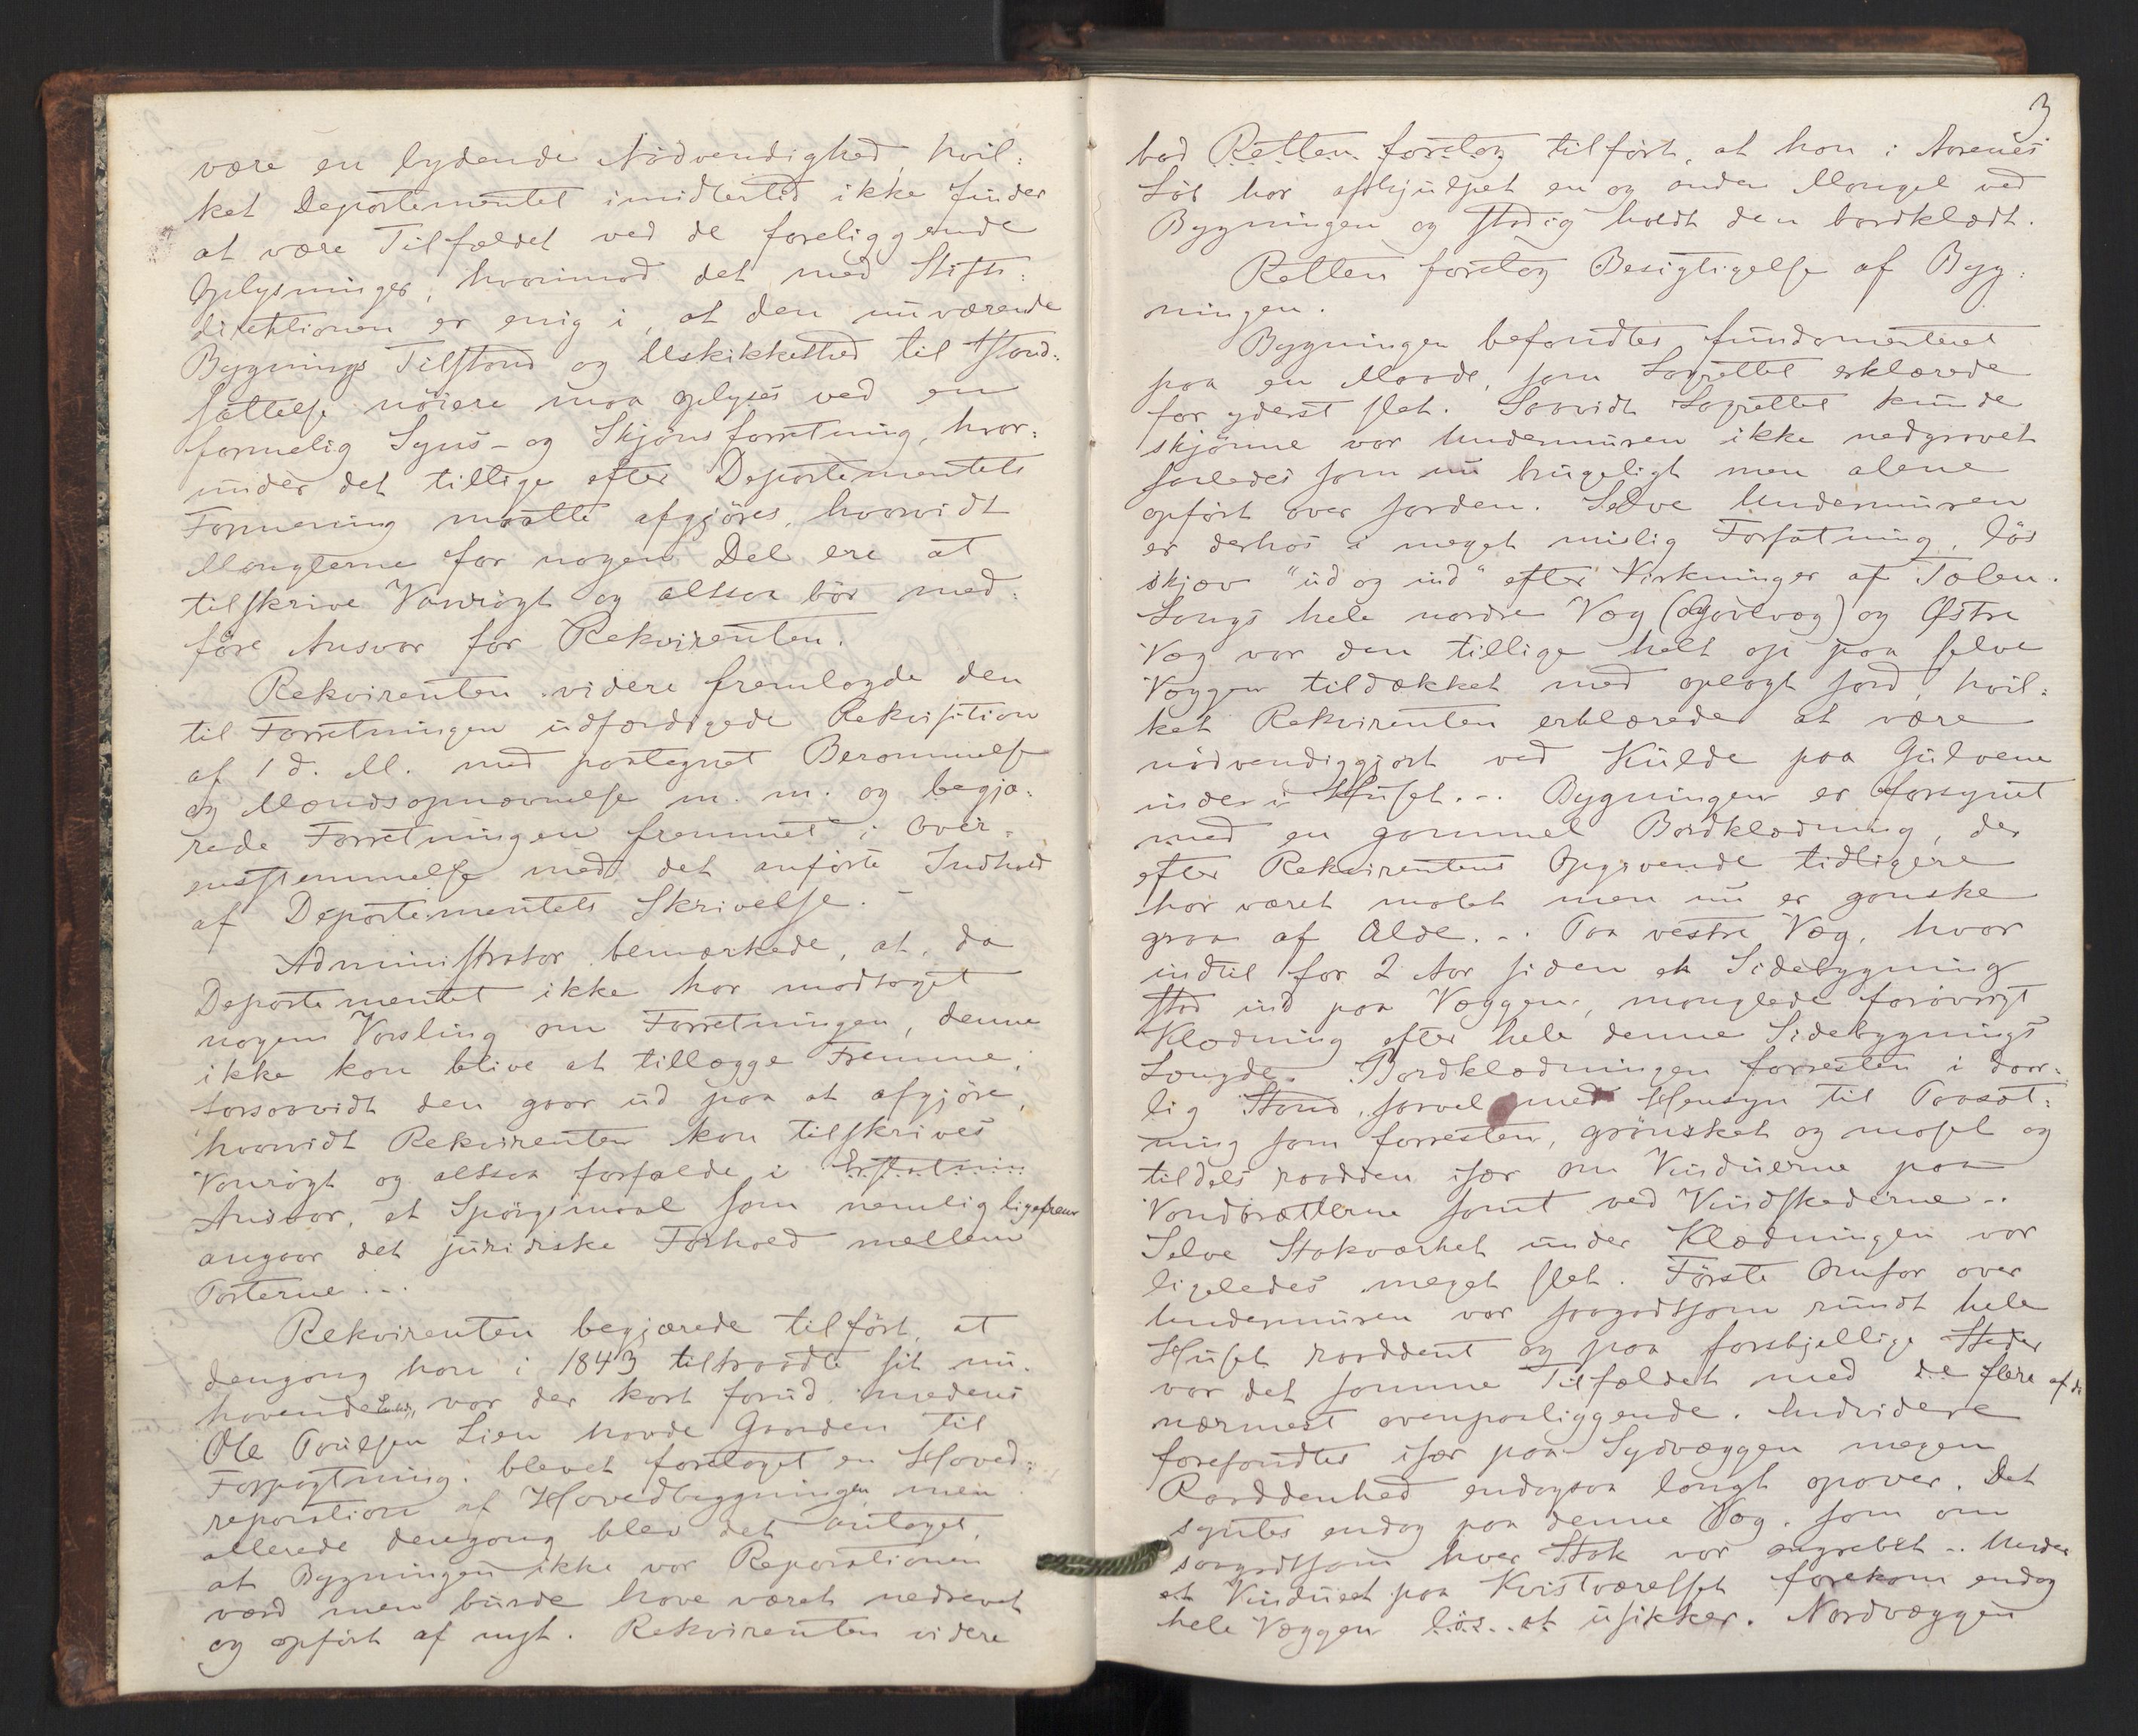 være en bydende Nødvendighed, hvil-
ket Departementet imidlertid ikke finder
at være Tilfældet ved de foreliggende
Oplysninger, hvorimod det med Stifts-
direktionen er enig i, at den nuværende
Bygnings Tilstand og Uskikkethed til Istand-
sættelse nöiere maa oplyses ved en
formelig Syns- og Skjönsforretning, hvor-
under det tillige efter Departementets
Formening maatte afgjöres, hvorvidt
Manglerne for nogen Del ere at
tilskrive Vanrögt og altsaa bör med-
före Ansvar for Rekvirenten.
Rekvirenten videre fremlagde den
til Forretningen udfærdigede Rekvisition
af 1 d. M. med paategnet Berammelse
og Mændsopnævnelse m. m. og begjæ-
rede Forretningen fremmet i Over-
ensstemmelse med det anförte Indhold
af Departementets Skrivelse. -
Administrator bemærkede, at, da
Departementet ikke har modtaget
nogen Varsling om Forretningen, denne
ikke kan blive at tillægge Fremme,
forsaavidt den gaar ud paa at afgjöre,
hvorvidt Rekvirenten kan tilskrives
Vanrögt og altsaa forfalde i Erstatnin
Ansvar, et Spörgsmaal som nemlig ligefrem
angaar det juridiske Forhold mellem
Parterne. -.
Rekvirenten begjærede tilfört, at
dengang han i 1843 tiltraadte sit nu-
havende Embede, var der kort forud, medens
Ole Poulsen Lien havde Gaarden til
Forpagtning, blevet foretaget en Hoved-
reparation af Hovedbyggningen, men
allerede dengang blev det antaget,
at Bygningen ikke var Reparationen
værd men burde have været nedrevet
og opfört af nyt. Rekvirenten videre
3
bad Retten foretog tilfört, at han i Aarenes
Löb har afhjulpet en og anden Mangel ved
Bygningen og stadig holdt den bordklædt.
Retten foretog Besigtigelse af Byg-
ningen.
Bygningen befandtes fundamenteret
paa en Maade, som Lagrettet erklærede
for yderst slet. Saavidt Lagrettet kunde
skjönne var Undermuren ikke nedgravet
saaledes som nu brugeligt men alene
opfört over Jorden. Selve Undermuren
er derhos i meget mislig Forfatning, lös
skjæv "ud og ind" efter Virkninger af Tælen.
Langs hele nordre Væg (Gavlvæg) og Østre
Væg var den tillige helt op paa selve
Væggen tildækket med oplagt Jord, hvil-
ket Rekvirenten erklærede at være
nödvendiggjort ved Kulde paa Gulvene
inde i Huset. -. Bygningen er forsynet
med en gammel Bordklædning, der
efter Rekvirentens Opgivende tidligere
har været malet men nu er ganske
graa af Ælde. -. Paa vestre Væg, hvor
indtil for 2 Aar siden en Sidebygning
stod ind paa Væggen, manglede forövrigt
Klædning efter hele denne Sidebygnings
Længde. Bordklædningen forresten i daar-
lig Stand, saavel med Hensyn til Paasæt-
ning som forresten, grönsket og moset og
tildels raadden især om Vinduerne paa
Vandbrætterne samt ved Vindskederne -.
Selve Stokværket under Klædningen var
ligeledes meget slet. Förste Omfar over
Undermuren var saagodtsom rundt hele
Huset raaddent og paa forskjellige Steder
var det samme Tilfældet med de flere af de
nærmest ovenpaaliggende. Endvidere
forefandtes især paa Sydvæggen megen
Raaddenhed endogsaa langt opover. Det
syntes endog paa denne Væg, som om
saagodtsom hver Stok var angrebet -. Under
et Vinduet paa Kvistværelset forekom endog
hele Væggen lös at usikker. Nordvæggen